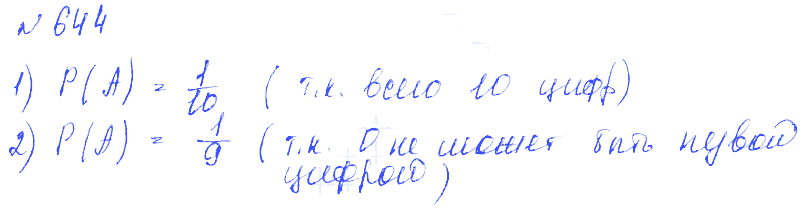 № 644
1) P(A) = 1/10 (т.к. всего 10 цифр)
2) P(A) = 1/9 (т.к. 0 не может быть первой
цифрой)